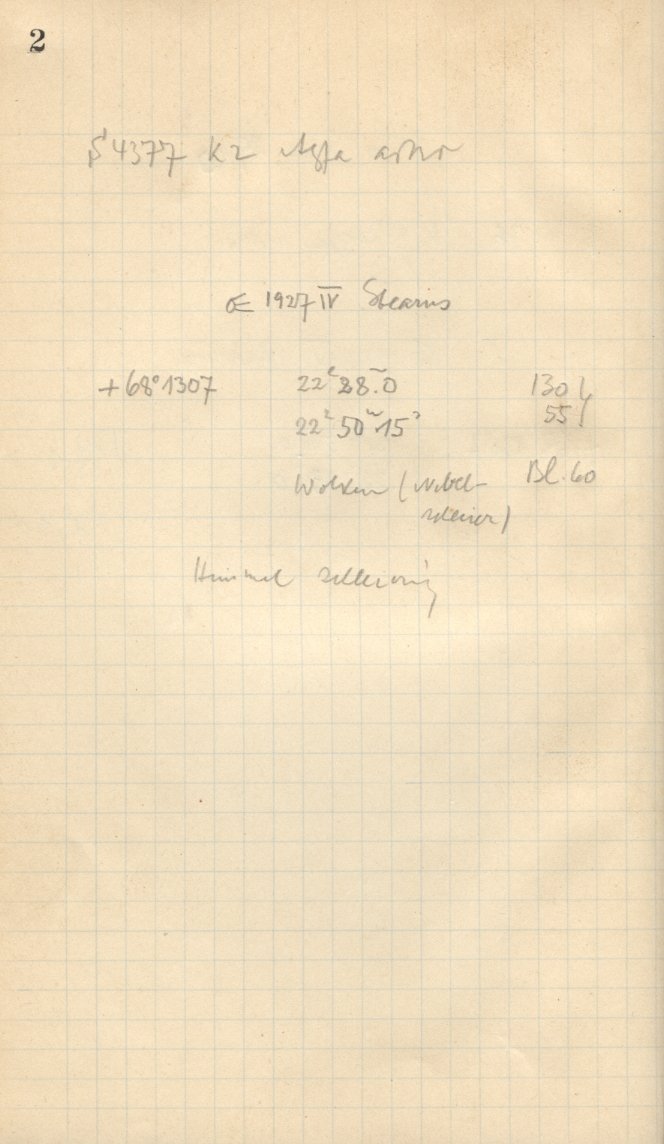 2
S 4377 K2 Agfa astro
1927 IV Stearns
+68°1307 22ʰ28ᵐ.0 130
22ʰ50ᵐ15ˢ 55
Wolken (Nebel- Bl. 60
schleier)
Himmel schleierig